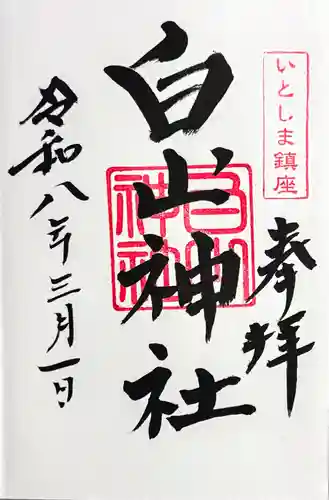 いとしま鎮座
奉拝
白山神社
白山神社
令和八年三月一日